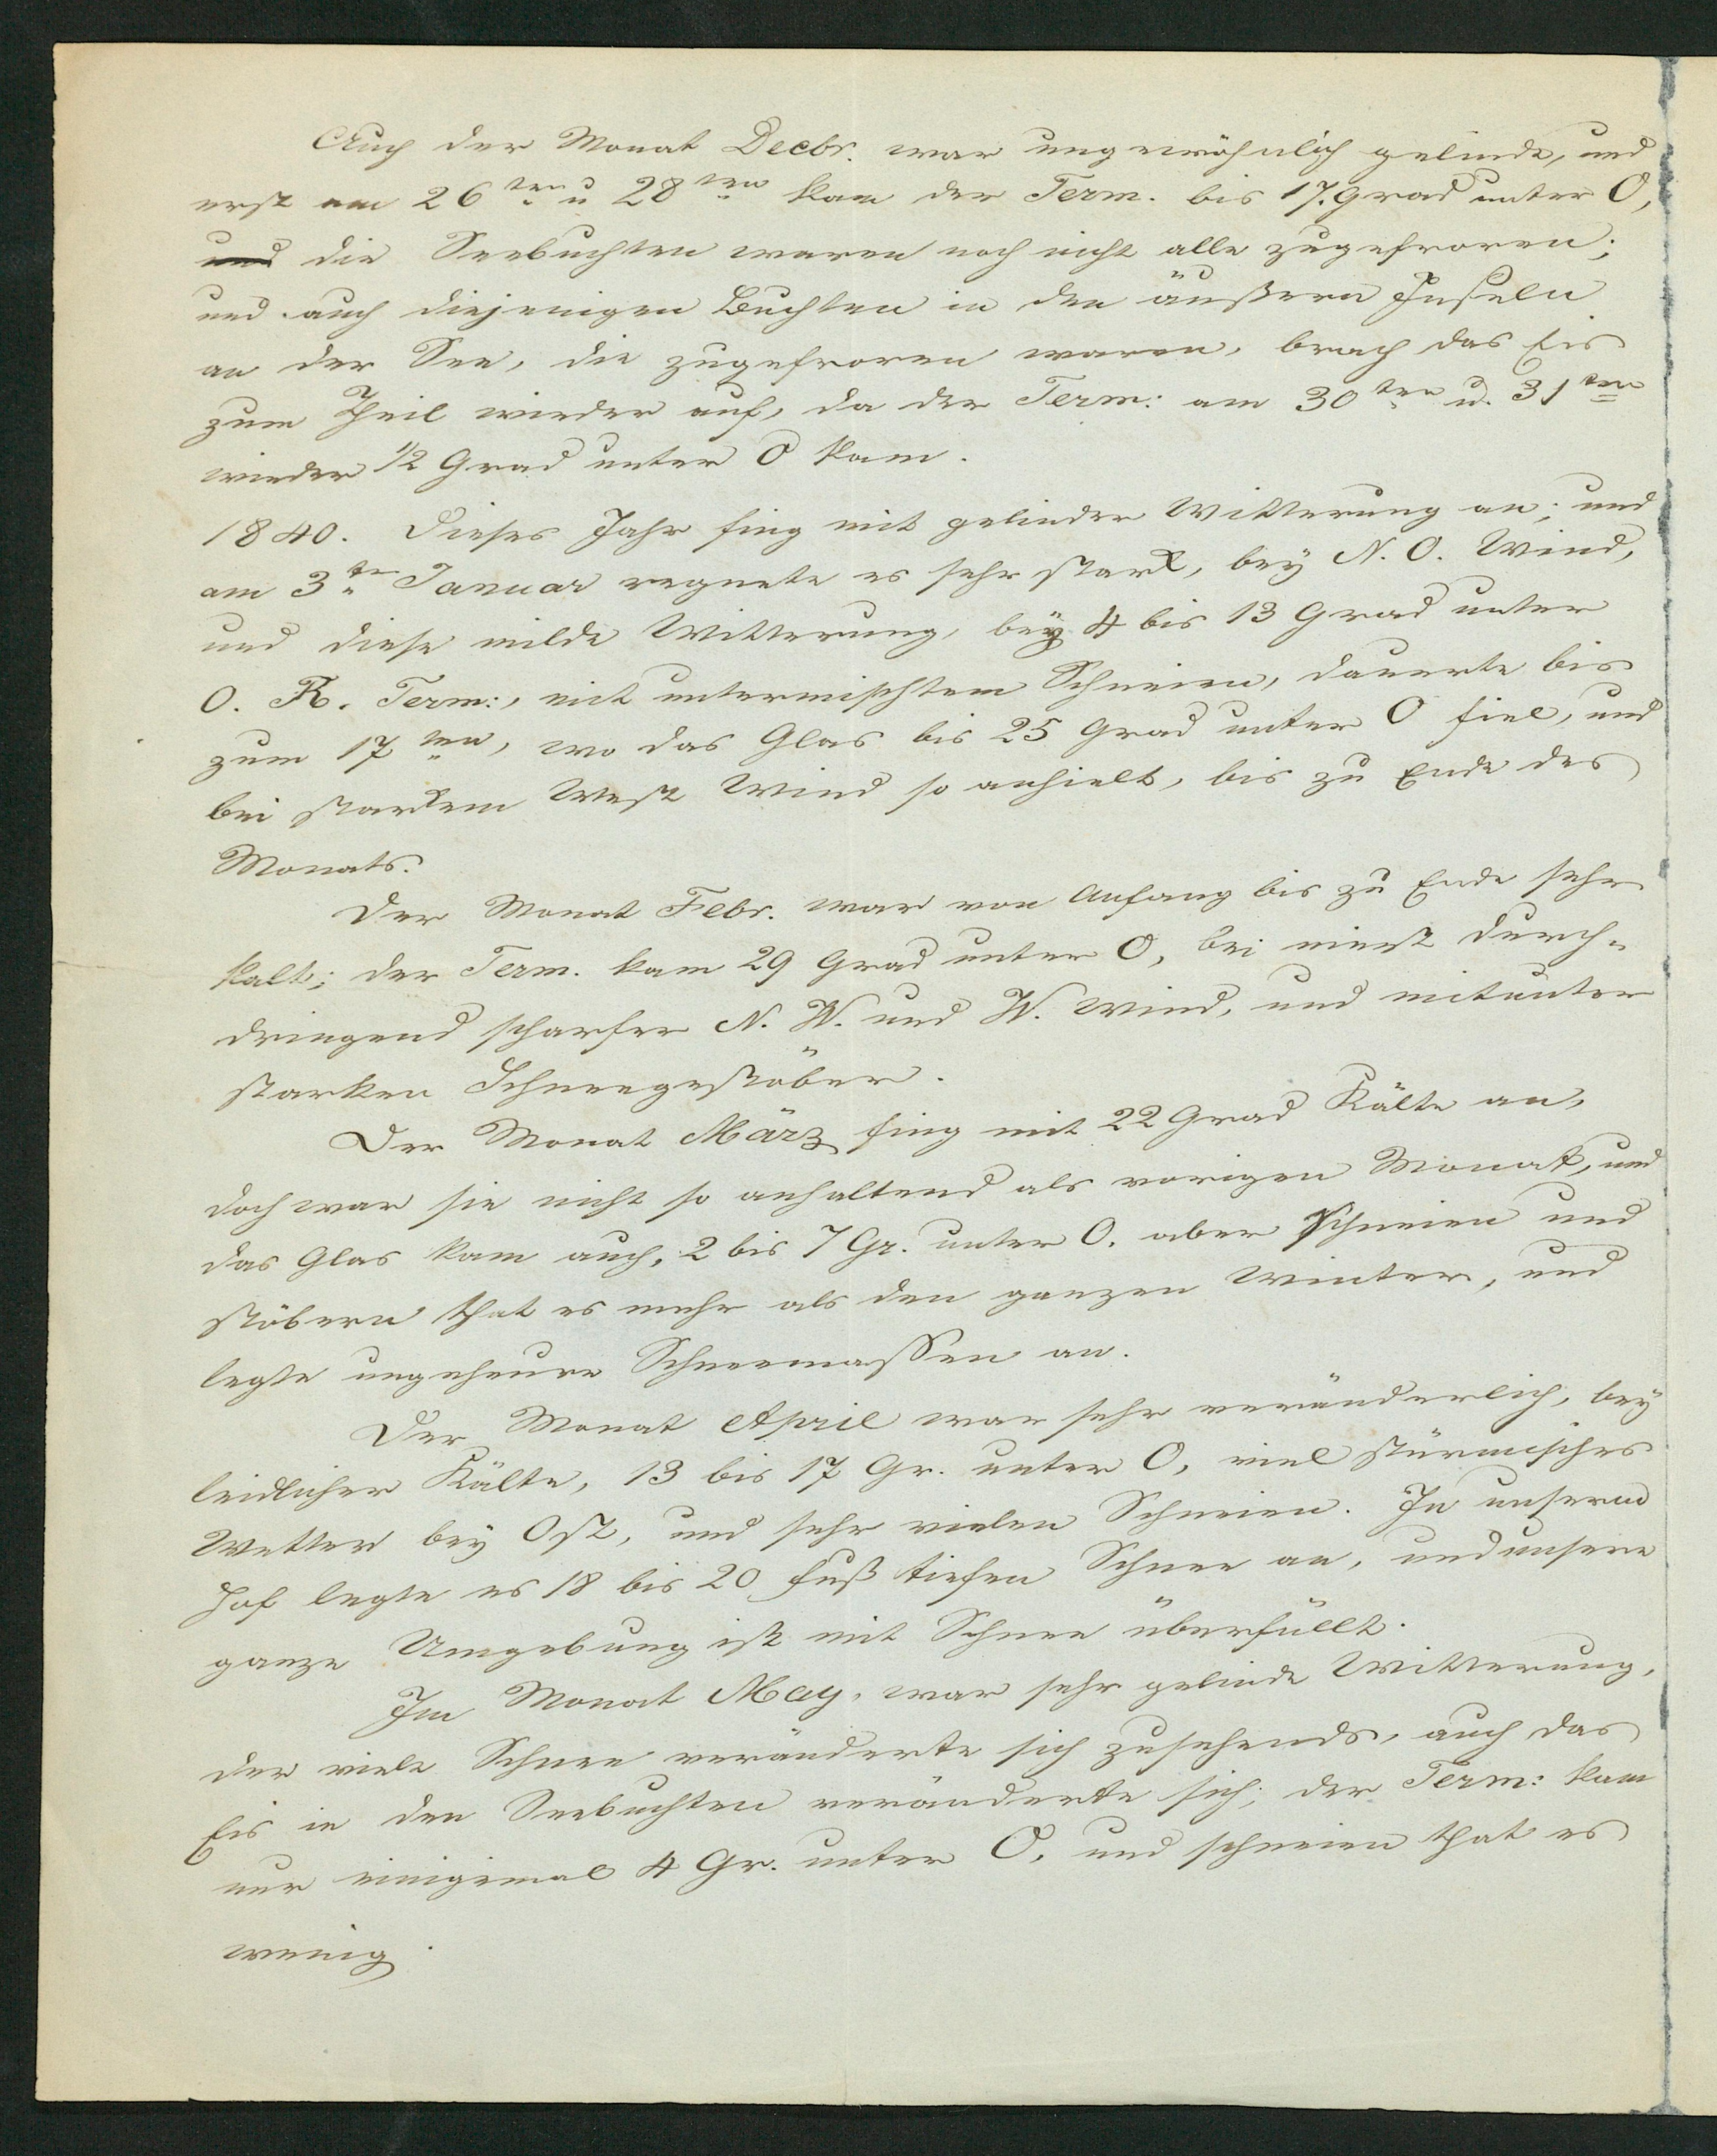 Auch der Monat Decbr. war ungewöhnlich gelinde, und
erst am 26ten u 28ten kam der Term. bis 17. Grad unter 0,
und die Seebuchten waren noch nicht alle zugefroren;
und auch diejenigen Buchten in den äußern Inseln
an der See, die zugefroren waren, brach das Eis
zum Theil wieder auf, da der Term: am 30ten u. 31ten
wieder 1/2 Grad unter 0 kam.
1840. Dieses Jahr fing mit gelinder Witterung an; und
am 3ten Januar regnete es sehr stark, bey N. O. Wind,
und diese milde Witterung, bey 4 bis 13 Grad unter
0. R. Term:, mit untermischtem Schneien, dauerte bis
zum 17ten, wo das Glas bis 25 Grad unter 0 fiel, und
bei starkem West Wind so anhielt, bis zu Ende des
Monats.
Der Monat Febr. war von Anfang bis zu Ende sehr
kalt; der Term. kam 29 Grad unter 0, bei meist durch-
dringend scharfer N. W. und W. Wind, und mitunter
starken Schneegestöber.
Der Monat März fing mit 22 Grad Kälte an,
doch war sie nicht so anhaltend als vorigen Monat, und
das Glas kam auch, 2 bis 7 Gr. unter 0. aber Schneien und
stöbern that es mehr als den ganzen Winter, und
legte ungeheure Schneemassen an.
Der Monat April war sehr veränderlich, bey
leidlicher Kälte, 13 bis 17 Gr. unter 0, viel stürmisches
Wetter bey Ost, und sehr vielen Schneien. In unserm
Hof legte es 18 bis 20 Fuß tiefen Schnee an, und unsere
ganze Umgebung ist mit Schnee überfüllt.
Im Monat May, war sehr gelinde Witterung,
der viele Schnee veränderte sich zusehends, auch das
Eis in den Seebuchten veränderte sich; der Term: kam
nur einigemal 4 Gr. unter 0, und schneien that es
wenig.